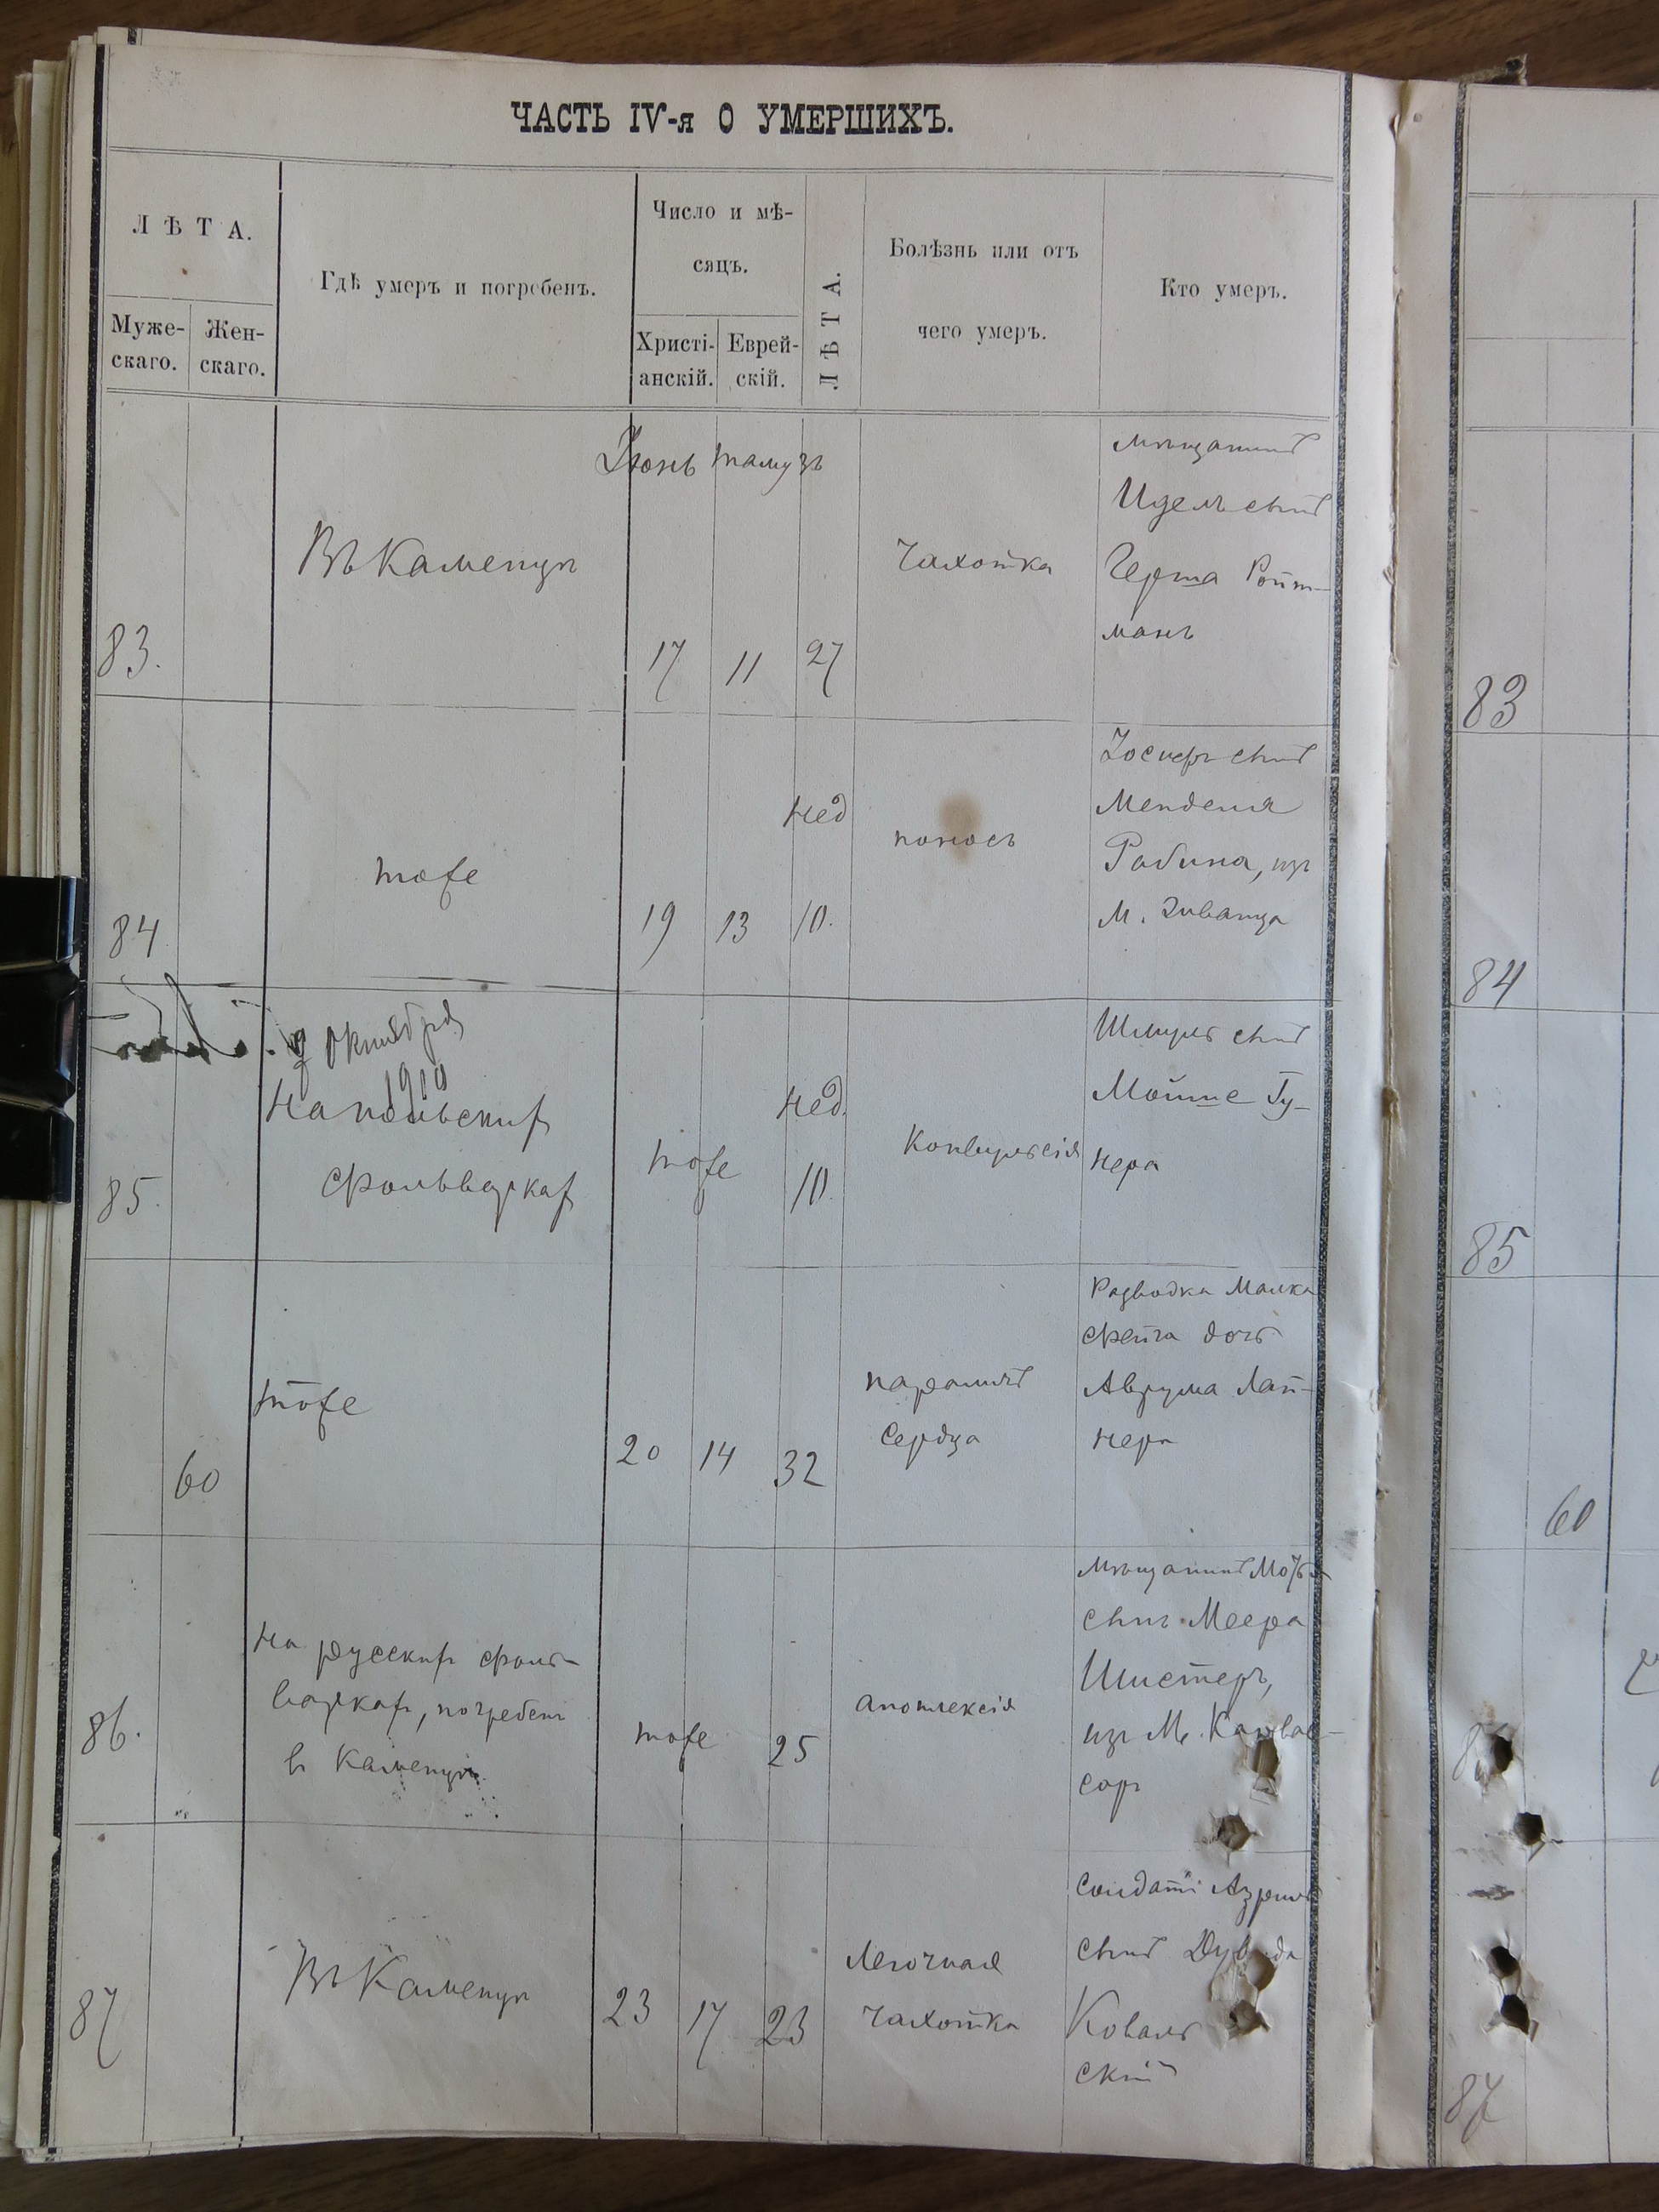 ЧАСТЬ IV-я О УМЕРШИХЪ.
ЛѢТА.
Муже-
скаго.
Жен-
скаго.
Гдѣ умеръ и погребенъ.
Число и мѣ-
сяцъ.
Христі-
анскій.
Еврей-
скій.
ЛѢТА.
Болѣзнь или отъ
чего умеръ.
Кто умеръ.
Іюнь тамузъ
83.
Въ Каменцѣ
17
11
27
Чахотка
мѣщанинъ
Идель сынъ
Герша Ройт-
манъ
83
84
тоже
19
13
нед
10.
поносъ
Іосифъ сынъ
Менделя
Рабина, изъ
м. Званца
84
9 Октября
1910
85.
На польскихъ
фольваркахъ
тоже
нед.
10.
Конвульсія
Шмуль сынъ
Мойше Гу-
нера
85
60
тоже
20
14
32
параличъ
сердца
Разводка Малка
Фейга дочь
Аврума Лап-
нера
60
86.
На русскихъ фоль-
варкахъ, погребенъ
в Каменцѣ
тоже
25
апоплексія
мѣщанинъ
сынъ Меера
Шистеръ,
изъ м.
саръ
87
Въ Каменцѣ
23
17
23
Легочная
чахотка
Солдатъ Азриль
сынъ Дувида
Коваль
скій
87